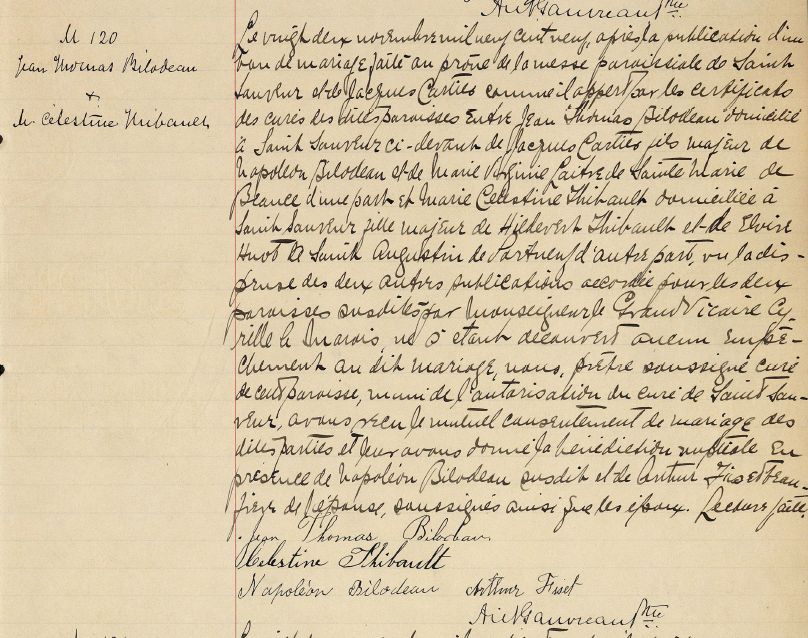 Ant Gauvreau Ptre
M 120
Jean Thomas Bilodeau
+
M. Célestine Thibault
Le vingt deux novembre mil neuf cent neuf, après la publication d'un
ban de mariage faite au prône de la messe paroissiale de Saint
Sauveur et de Jacques Cartier comme il appert par les certificats
des curés des dites paroisses entre Jean Thomas Bilodeau domicilié
à Saint Sauveur ci-devant de Jacques Cartier fils majeur de
Napoléon Bilodeau et de Marie Virginie de Sainte Marie de
Beauce d'une part et Marie Célestine Thibault domiciliée à
Saint Sauveur fille majeur de Hildevert Thibault et de Elvire
Huot de Saint Augustin de Portneuf d'autre part, vu la dis-
pense des deux autres publications accordée pour les deux
paroisses susdites par Monseigneur le Grand Vicaire Cy-
rille le Marois, ne s'étant découvert aucun empê-
chement au dit mariage, nous, prêtre soussigné curé
de cette paroisse, muni de l'autorisation du curé de Saint Sau-
veur, avons reçu le mutuel consentement de mariage des
dites parties et leur avons donné la bénédiction nuptiale en
présence de Napoléon Bilodeau susdit et de Arthur Fiset beau-
frère de l'épouse, soussignés ainsi que les époux. Lecture faite.
Jean Thomas Bilodeau
Célestine Thibault
Napoléon Bilodeau Arthur Fiset
Ant Gauvreau Ptre